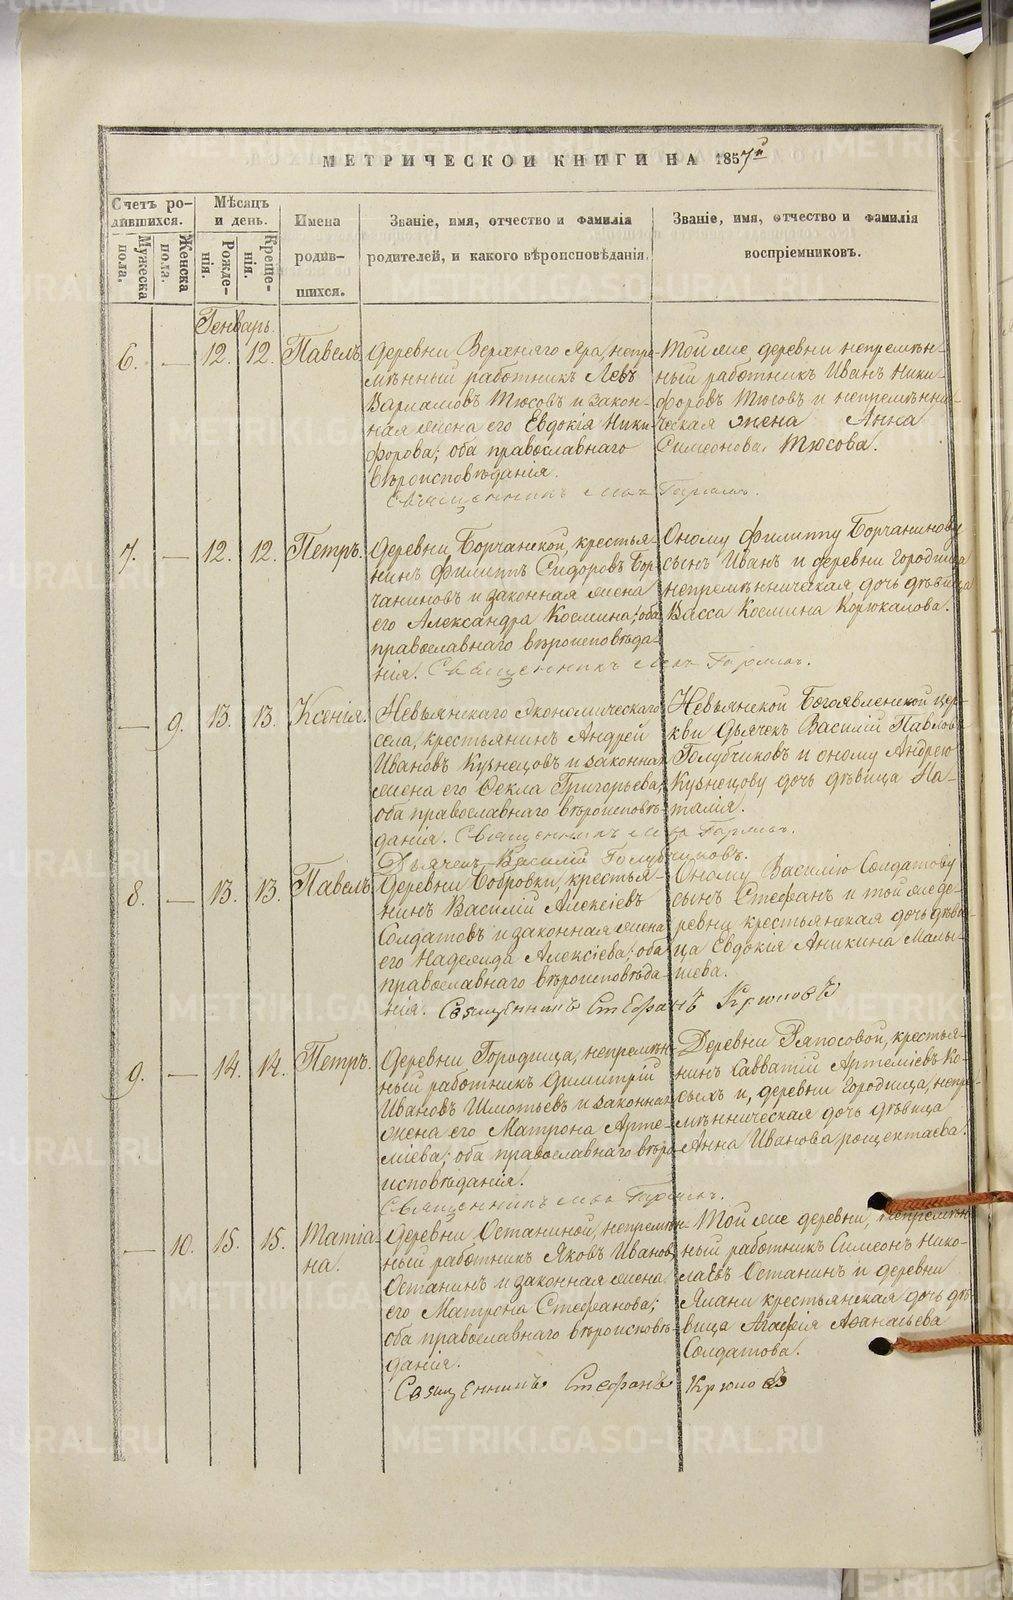 МЕТРИЧЕСКОЙ КНИГИ НА 1857й
Счетъ родившихся.
Мѣсяцъ и день.
Имена родившихся.
Званіе, имя, отчество и фамилія родителей, и какого вѣроисповѣданія.
Званіе, имя, отчество и фамилія воспріемниковъ.
Мужеска пола.
Женска пола.
Рожденія.
Крещенія.
Генварь.
6. — 12. 12. Павелъ.
Деревни Верхняго Яра, непре-
мѣнный работникъ Левъ
Варламовъ Тюсовъ и закон-
ная жена его Евдокія Ники-
форова; оба православнаго
вѣроисповѣданія.
Той же деревни непремѣн-
ный работникъ Иванъ Ники-
форовъ Тюсовъ и непремѣнни-
ческая жена Анна
Симеонова Тюсова.
Священникъ
7. — 12. 12. Петръ.
Деревни Борчанской, крестья-
нинъ Филиппъ Сидоровъ Бор-
чаниновъ и законная жена
его Александра Космина; оба
православнаго вѣроисповѣда-
нія.
Оному Филиппу Борчанинову
сынъ Иванъ и деревни Городища
непремѣнническая дочь дѣвица
Васса Космина Корюкалова.
Священникъ
— 9. 13. 13. Ксенія.
Невьянскаго Экономическаго
села, крестьянинъ Андрей
Ивановъ Кузнецовъ и законная
жена его Ѳекла Григорьева;
оба православнаго вѣроисповѣ-
данія.
Невьянской Богоявленской цер-
кви Дьячекъ Василій Павловъ
Голубчиковъ и оному Андрею
Кузнецову дочь дѣвица На-
талія.
Священникъ
Дьячекъ Василій Голубчиковъ.
8. — 13. 13. Павелъ.
Деревни Бобровки, крестья-
нинъ Василій Алексіевъ
Солдатовъ и законная жена
его Надежда Алексіева; оба
православнаго вѣроисповѣда-
нія.
Оному Василію Солдатову
сынъ Стефанъ и той же де-
ревни крестьянская дочь дѣви-
ца Евдокія Аникина Малы-
шева.
Священникъ Стефанъ
9. — 14. 14. Петръ.
Деревни Городища, непремѣн-
ный работникъ Димитрій
Ивановъ Шмотьевъ и законная
жена его Матрона Арте-
міева; оба православнаго вѣро-
исповѣданія.
Деревни Ряпосовой, крестья-
нинъ Савватій Артеміевъ Ко-
сыхъ и, деревни Городища, непре-
мѣнническая дочь дѣвица
Анна Иванова
Священникъ
— 10. 15. 15. Татіа-
на.
Деревни Останиной, непремѣн-
ный работникъ Яковъ Ивановъ
Останинъ и законная жена
его Матрона Стефанова;
оба православнаго вѣроисповѣ-
данія.
Той же деревни, непремѣн-
ный работникъ Симеонъ Нико-
лаевъ Останинъ и деревни
Ялани крестьянская дочь дѣ-
вица Агафія Аѳанасьева
Солдатова.
Священникъ Стефанъ
METRIKI.GASO-URAL.RU